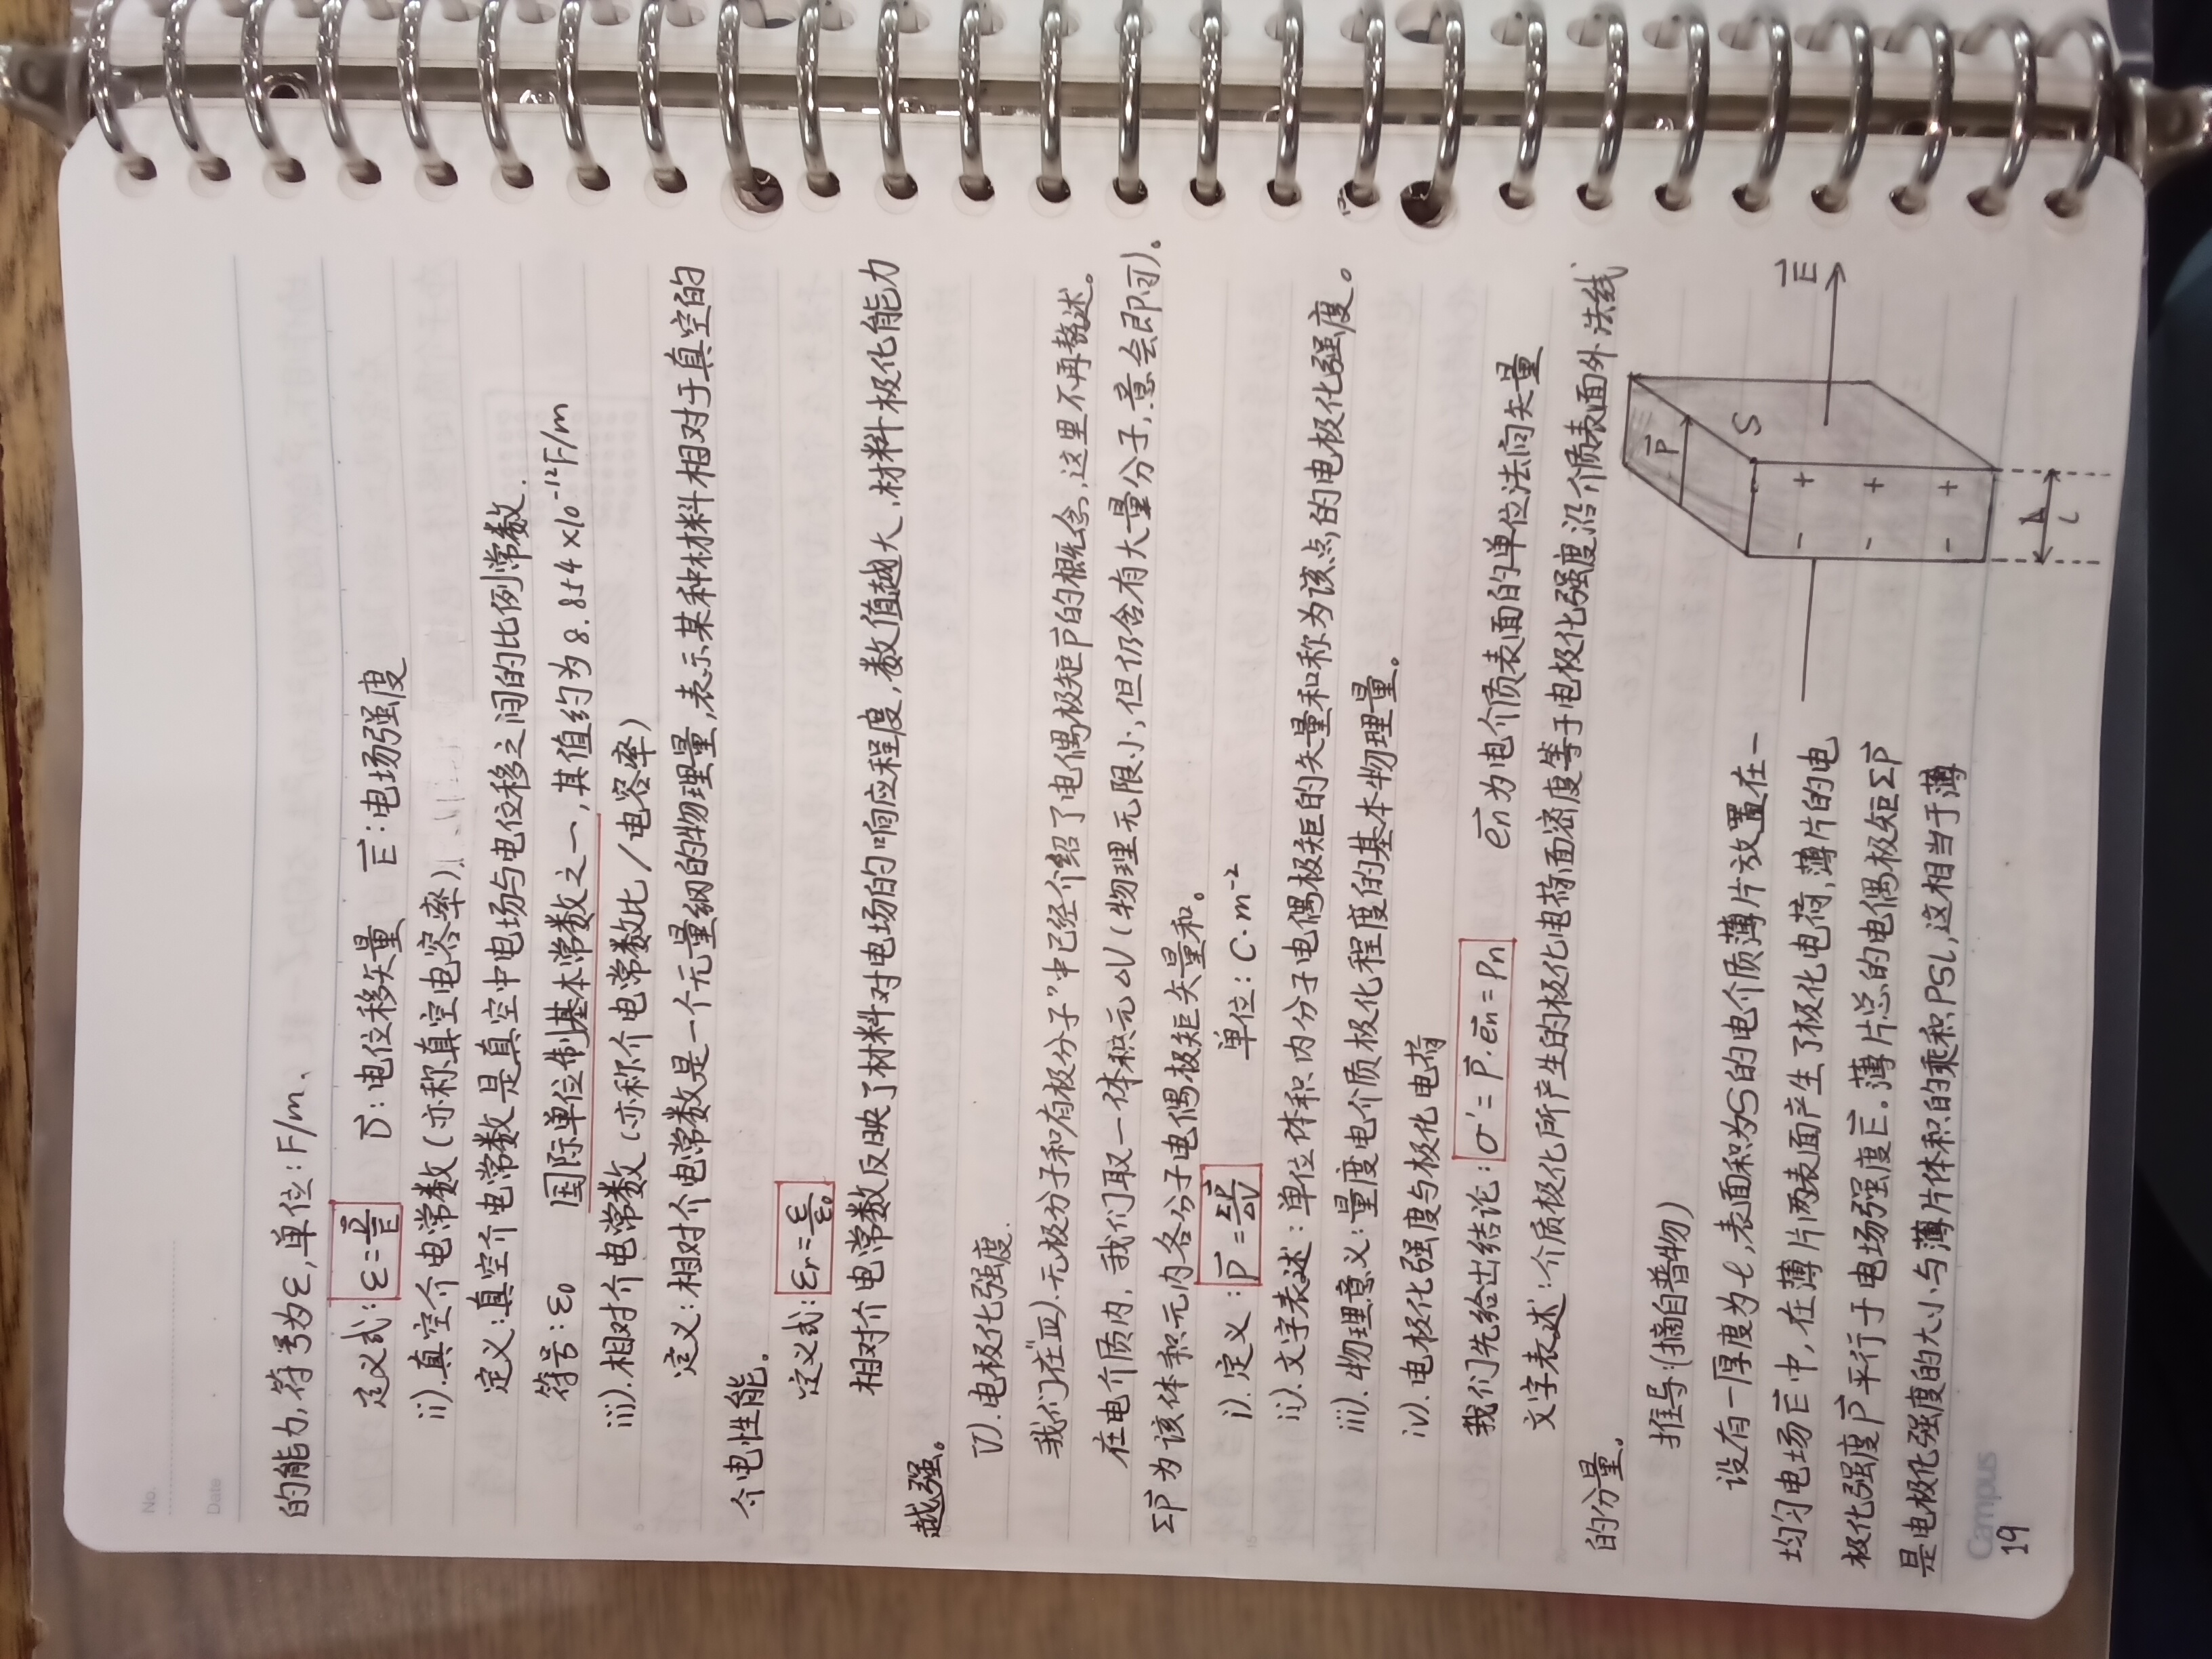 No.
Date
的能力,符号为ε,单位:F/m、
定义式:ε=D⃗/E⃗ D⃗:电位移矢量 E⃗:电场强度
ii).真空介电常数(亦称真空电容率)
定义:真空介电常数是真空中电场与电位移之间的比例常数.
符号:ε₀ 国际单位制基本常数之一,其值约为8.854×10⁻¹²F/m
iii).相对介电常数(亦称介电常数比/电容率)
定义:相对介电常数是一个无量纲的物理量,表示某种材料相对于真空的
介电性能。
定义式:εr=ε/ε₀
相对介电常数反映了材料对电场的响应程度,数值越大,材料极化能力
越强。
电极化强度.
我们在"四).无极分子和有极分子"中已经介绍了电偶极矩P⃗的概念,这里不再赘述。
在电介质内,我们取一体积元ΔV(物理无限小,但仍含有大量分子,意会即可)。
ΣP⃗为该体积元内各分子电偶极矩矢量和。
i).定义:P⃗=ΣP⃗/ΔV 单位:C·m⁻²
ii).文字表述:单位体积内分子电偶极矩的矢量和称为该点的电极化强度。
iii).物理意义:量度电介质极化程度的基本物理量。
iv).电极化强度与极化电荷
我们先给出结论:σ'=P⃗·e⃗n=Pn e⃗n为电介质表面的单位法向矢量
文字表述:介质极化所产生的极化电荷面密度等于电极化强度沿介质表面外法线
的分量。
推导:(摘自普物)
设有一厚度为l,表面积为S的电介质薄片放置在一
均匀电场E⃗中,在薄片两表面产生了极化电荷,薄片的电
极化强度P⃗平行于电场强度E⃗。薄片总的电偶极矩ΣP⃗
是电极化强度的大小与薄片体积的乘积PSl,这相当于薄
P⃗
S
E⃗
- +
- +
- +
l
Campus
19